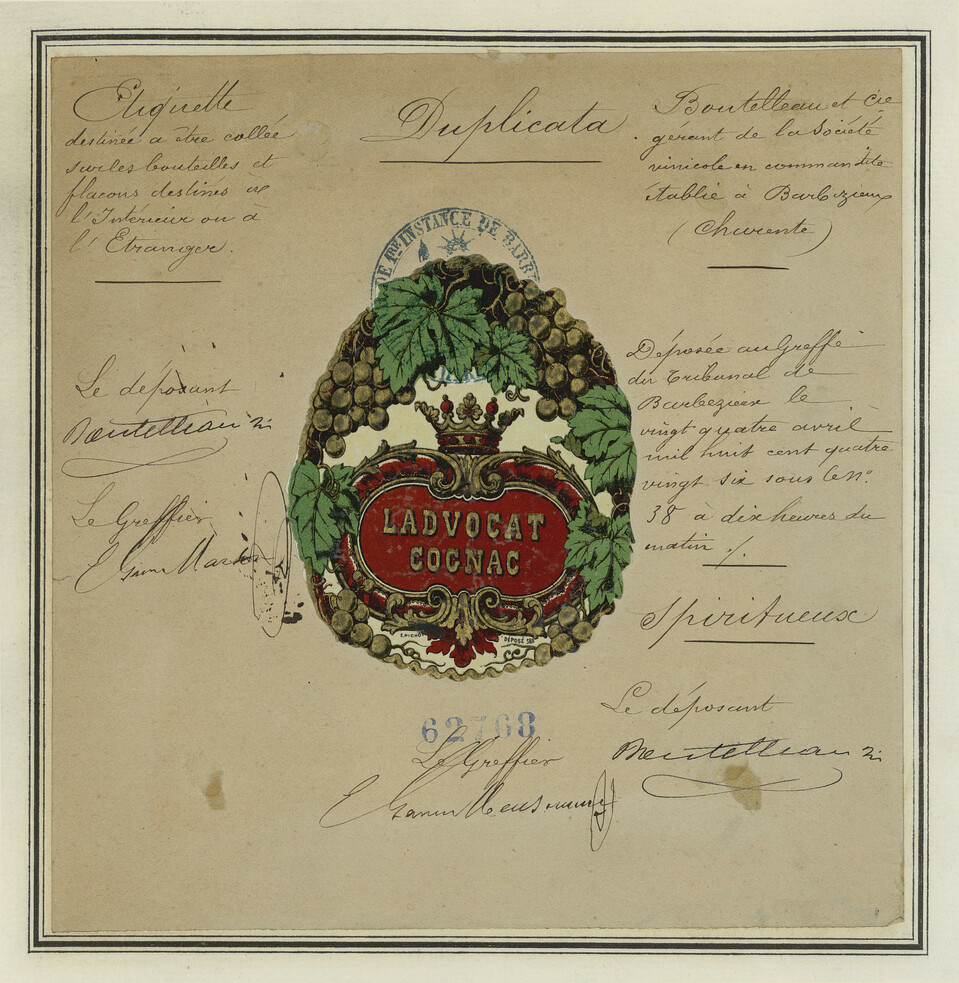 Etiquette
destinée a être collée
sur les bouteilles et
flacons destinés à
l'Intérieur ou à
l'Etranger.
Duplicata
Boutelleau et Cie
gérant de la Société
vinicole en commandite
établie à Barbezieux
(Charente)
DE 1ERE INSTANCE DE BARBE
LADVOCAT
COGNAC
DÉPOSÉ
Le déposant
Boutelleau
Le Greffier
Déposée au Greffe
du Tribunal de
Barbezieux le
vingt quatre avril
mil huit cent quatre
vingt six sous le No.
38 à dix heures du
matin ./.
Spiritueux
Le déposant
Boutelleau
62768
Le Greffier